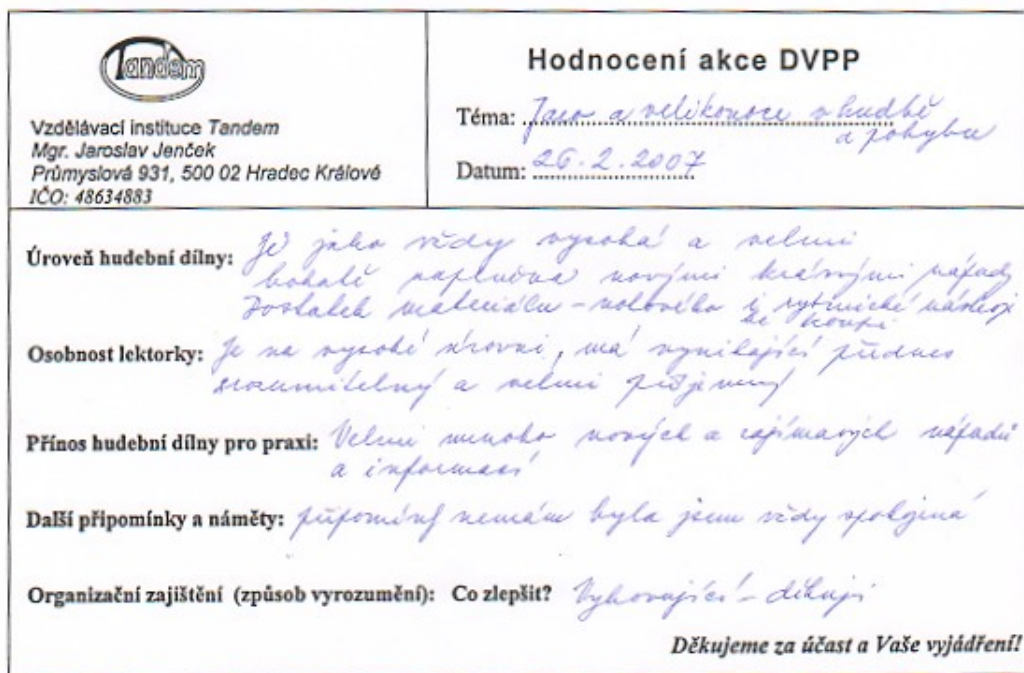 Tandem
Vzdělávací instituce Tandem
Mgr. Jaroslav Jenček
Průmyslová 931, 500 02 Hradec Králové
IČO: 48634883
Hodnocení akce DVPP
Téma: Jaro a velikonoce v hudbě
a pohybu
Datum: 26.2.2007
Úroveň hudební dílny: Je jako vždy vysoká a velmi
bohatě naplněna novými krásnými nápady
Dostatek materiálu - notového i rytmické nástroje
ke koupi
Osobnost lektorky: Je na vysoké úrovni, má vynikající přednes
srozumitelný a velmi příjemný
Přínos hudební dílny pro praxi: Velmi mnoho nových a zajímavých nápadů
a informací
Další připomínky a náměty: nemám byla jsem vždy spokojená
Organizační zajištění (způsob vyrozumění): Co zlepšit? Vyhovující - děkuji
Děkujeme za účast a Vaše vyjádření!